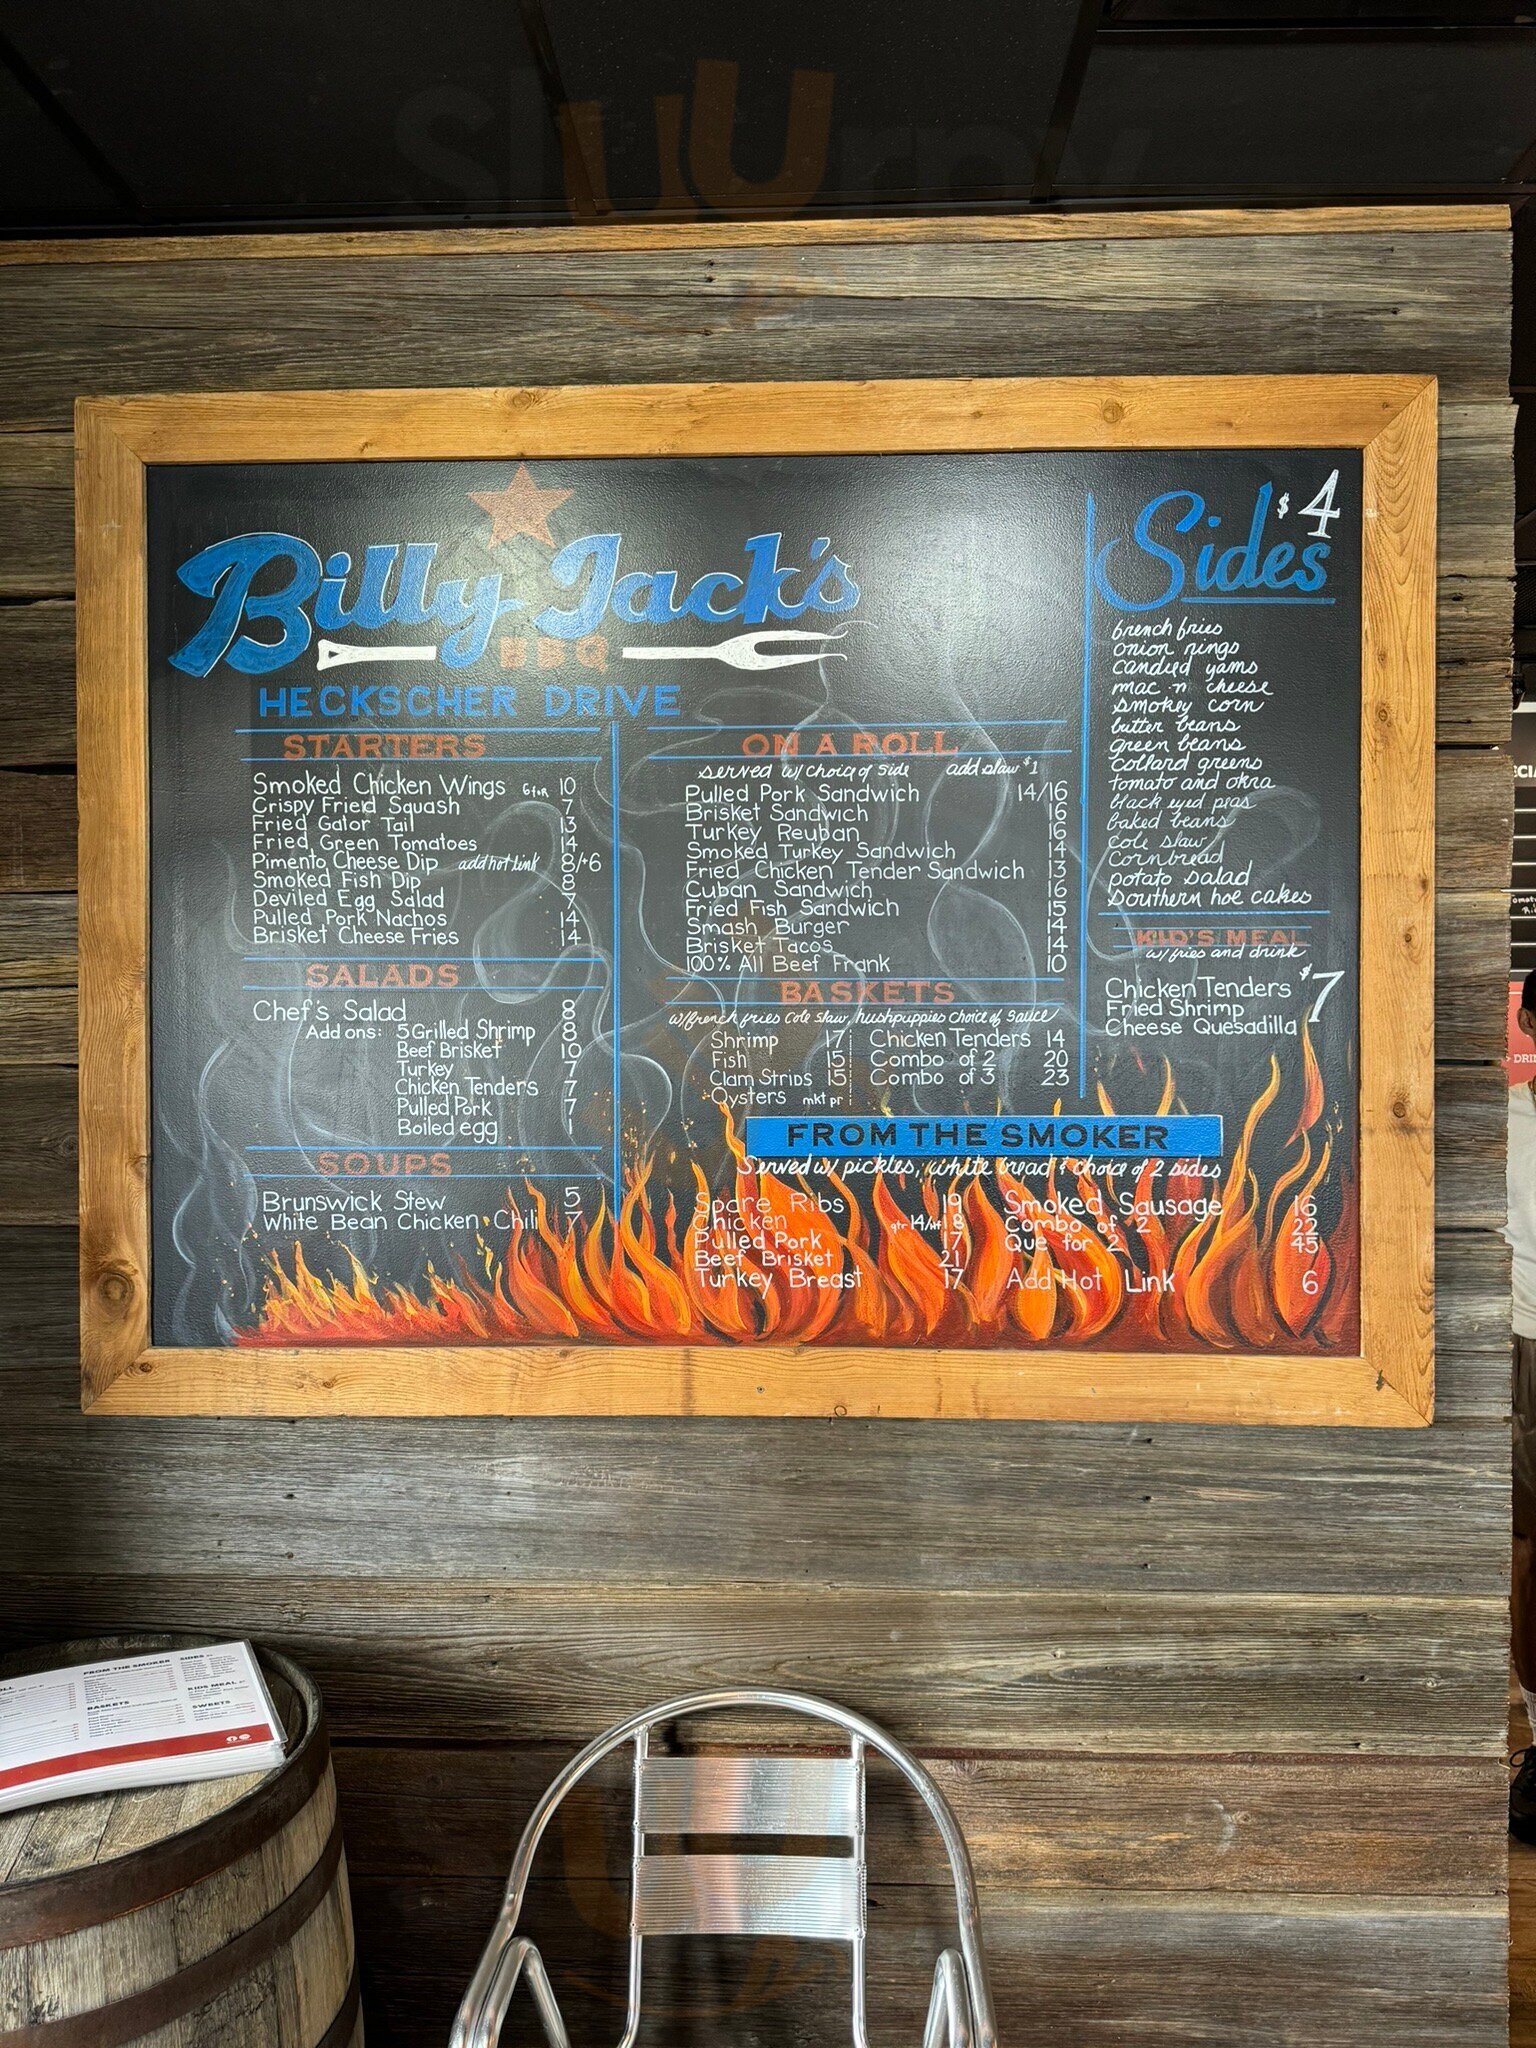 Billy Jack's
BBQ
HECKSCHER DRIVE
STARTERS
Smoked Chicken Wings 6 for 10
Crispy Fried Squash 7
Fried Gator Tail 13
Fried Green Tomatoes 14
Pimento Cheese Dip add hot link 8/+6
Smoked Fish Dip 8
Deviled Egg Salad 7
Pulled Pork Nachos 14
Brisket Cheese Fries 14
SALADS
Chef's Salad 8
Add ons: 5 Grilled Shrimp 8
Beef Brisket 10
Turkey 7
Chicken Tenders 7
Pulled Pork 7
Boiled egg 1
SOUPS
Brunswick Stew 5
White Bean Chicken Chili 7
ON A ROLL
served w/ choice of side add slaw $1
Pulled Pork Sandwich 14/16
Brisket Sandwich 16
Turkey Reuban 16
Smoked Turkey Sandwich 14
Fried Chicken Tender Sandwich 13
Cuban Sandwich 16
Fried Fish Sandwich 15
Smash Burger 14
Brisket Tacos 14
100% All Beef Frank 10
BASKETS
w/french fries cole slaw, hushpuppies choice of sauce
Shrimp 17 Chicken Tenders 14
Fish 15 Combo of 2 20
Clam Strips 15 Combo of 3 23
Oysters mkt pr
FROM THE SMOKER
Served w/ pickles, white bread & choice of 2 sides
Spare Ribs 19 Smoked Sausage 16
Chicken qtr 14/hf 18 Combo of 2 22
Pulled Pork 17 Que for 2 45
Beef Brisket 21
Turkey Breast 17 Add Hot Link 6
Sides $4
french fries
onion rings
candied yams
mac n cheese
smokey corn
butter beans
green beans
collard greens
tomato and okra
black eyed peas
baked beans
cole slaw
cornbread
potato salad
southern hoe cakes
KID'S MEAL
w/ fries and drink
$7
Chicken Tenders
Fried Shrimp
Cheese Quesadilla
FROM THE SMOKER
SIDES
BASKETS
KIDS MEAL
SWEETS